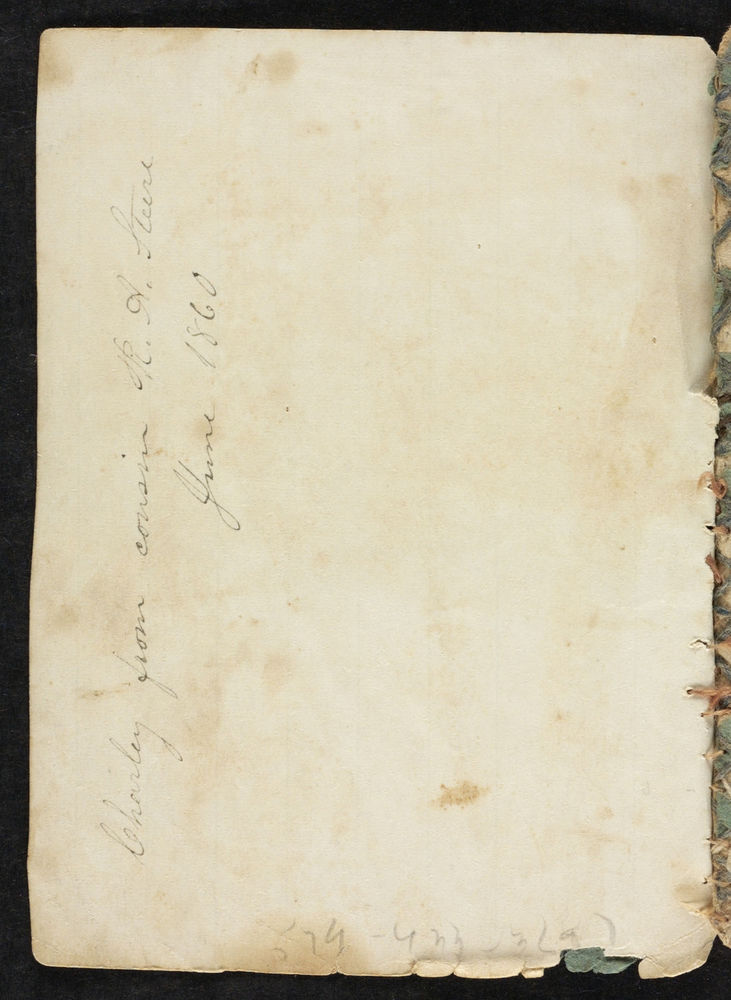 Charley from cousin R. A. Steere
June 1860